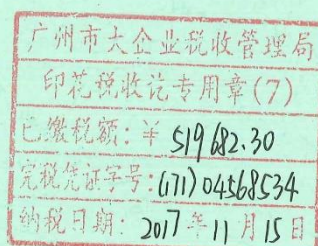 广州市大企业税收管理局
印花税收讫专用章(7)
已缴税额:￥519682.30
完税凭证字号:(171)04568534
纳税日期:2017年11月15日